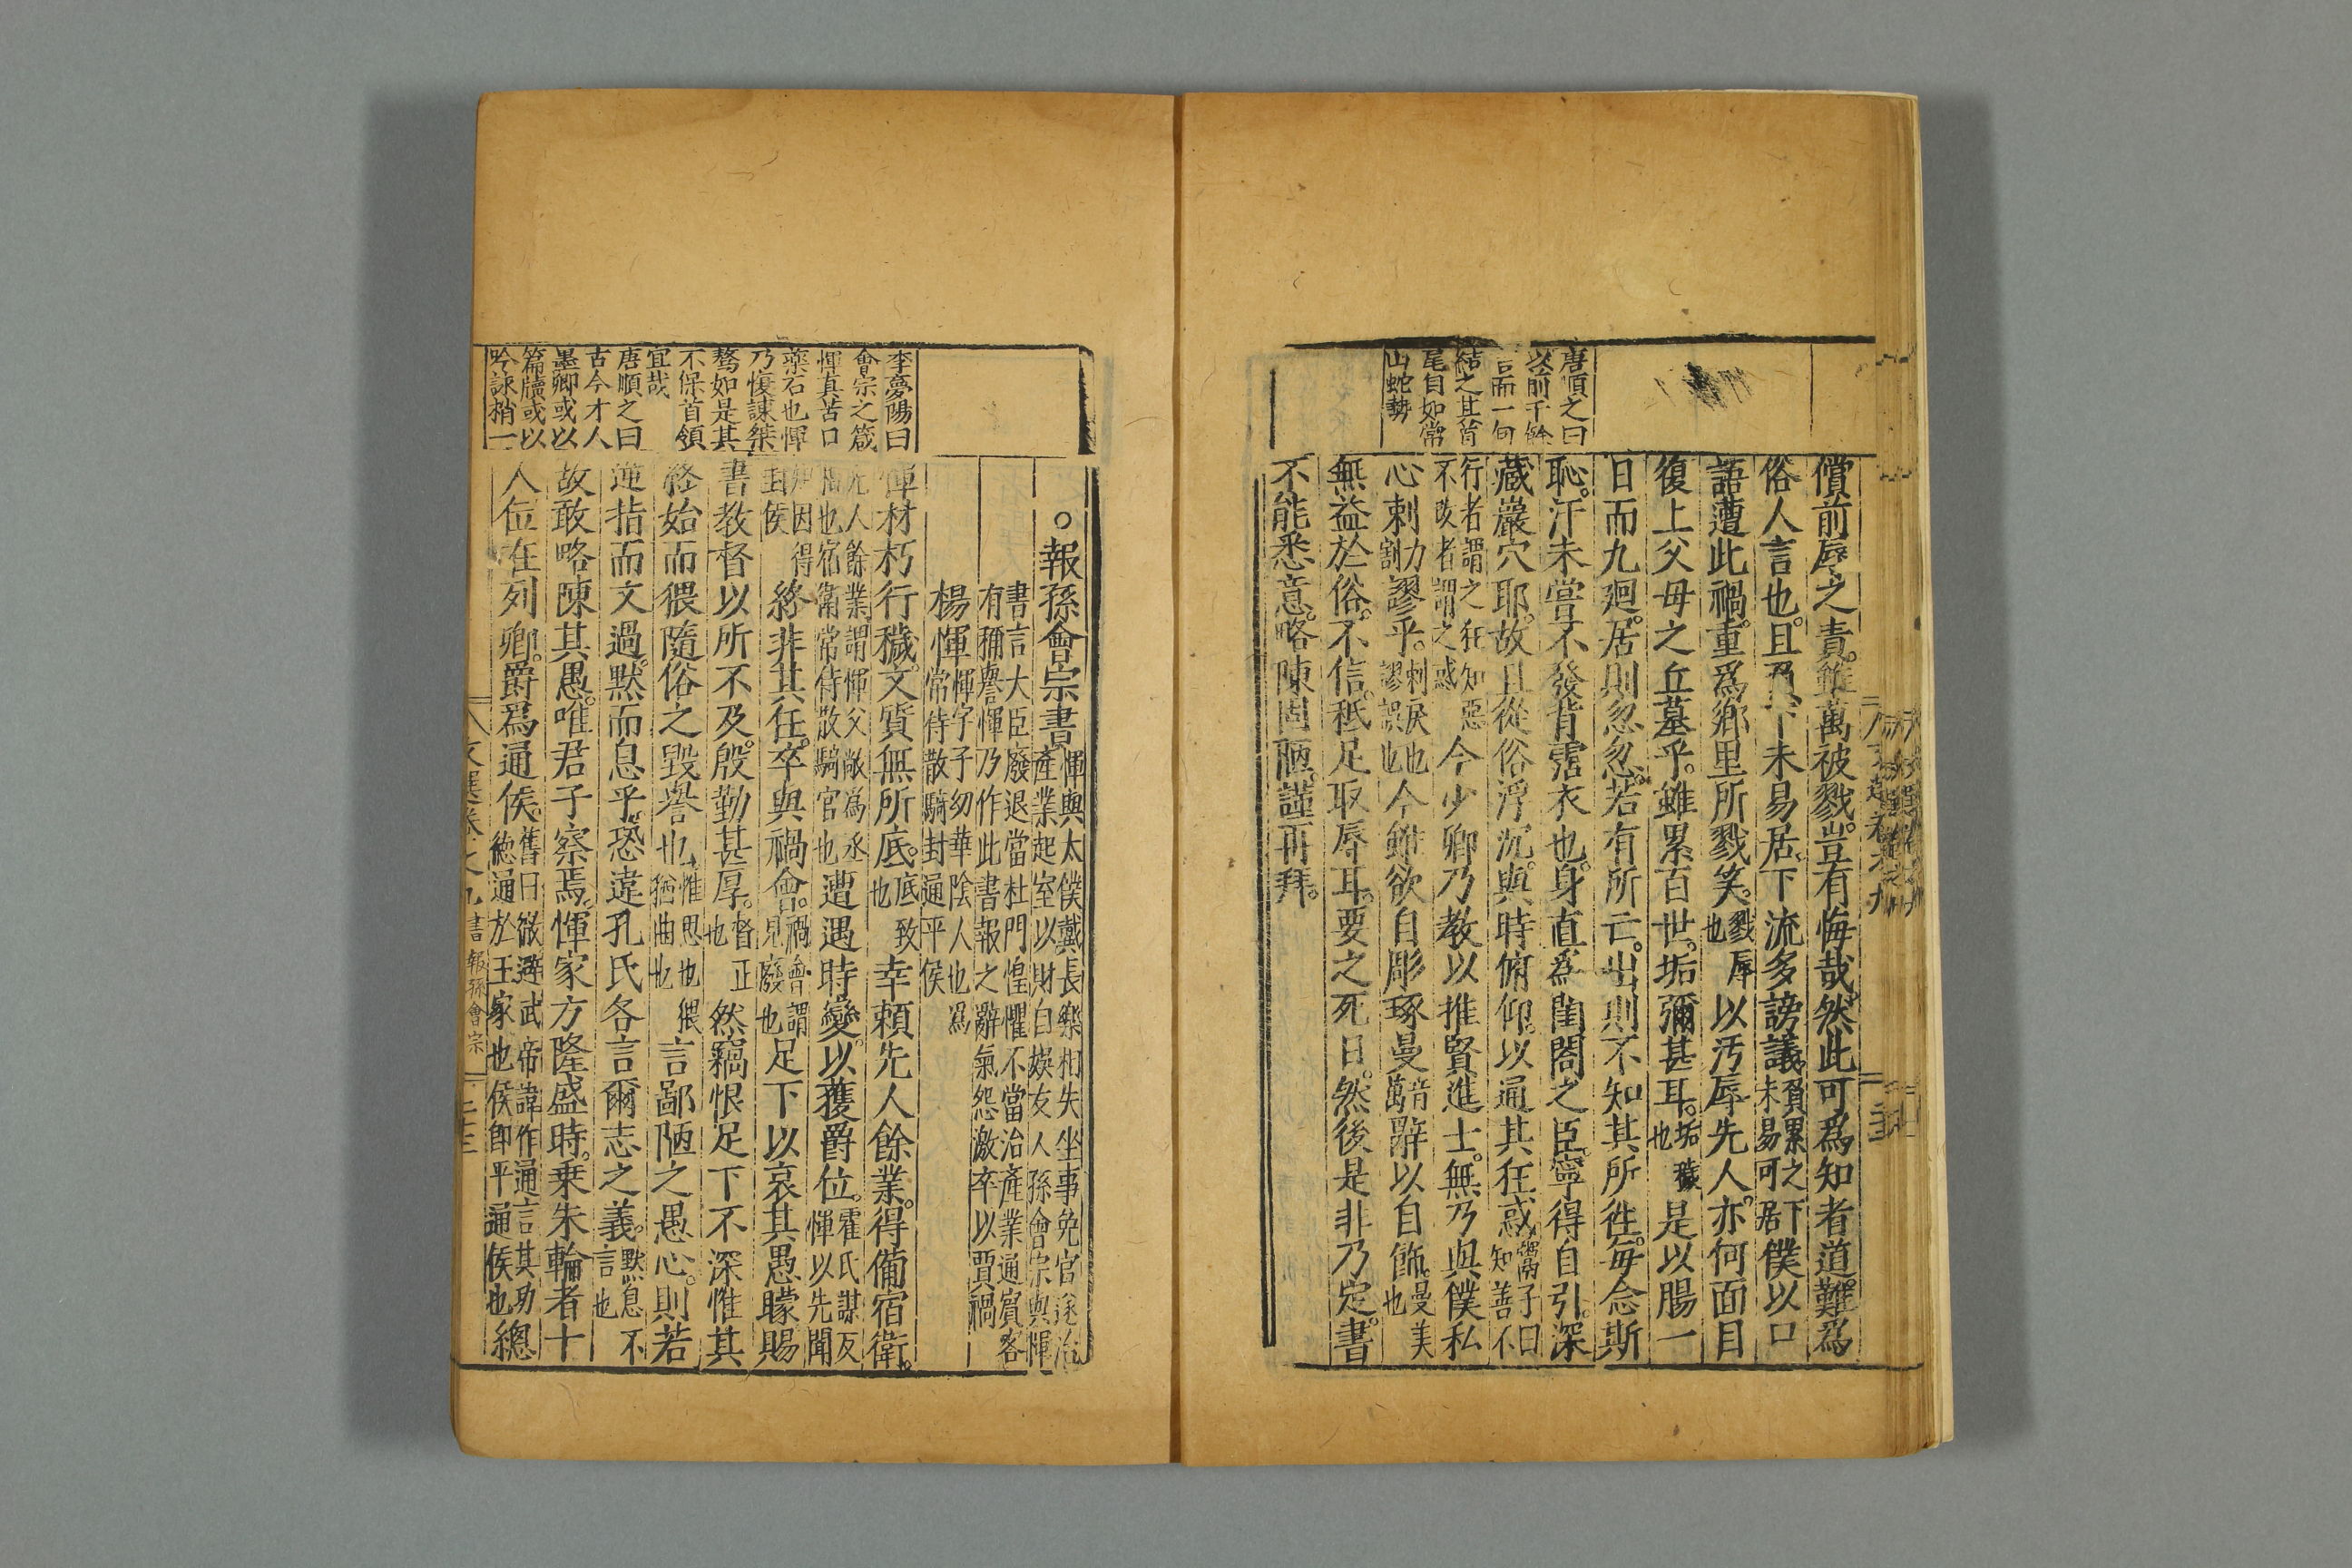 唐順之曰
以前千餘
言而一句
結之其首
尾自如常
山蛇勢
償前辱之責。雖萬被戮。豈有悔哉。然此可爲知者道。難爲
俗人言也。且負下未易居。下流多謗議。負累之下未易可居僕以口
語遭此禍。重爲鄉里所戮笑。戮辱也以汚辱先人。亦何面目
復上父母之丘墓乎。雖累百世。垢彌甚耳。垢穢也是以腸一
日而九廻。居則忽忽。若有所亡。出則不知其所徃。每念斯
恥。汗未嘗不發背霑衣也。身直爲閨閤之臣。寧得自引。深
藏巖穴耶。故且從俗浮沉。與時俯仰。以通其狂惑。鬻子曰知善不
行者謂之狂知惡不改者謂之惑今少卿乃教以推賢進士。無乃與僕私
心刺力割謬乎。刺戾也謬誤也今雖欲自彫琢曼音萬辭以自飾。曼美也
無益於俗。不信。秪足取辱耳。要之死日。然後是非乃定。書
不能悉意。略陳固陋。謹再拜。
李夢陽曰
會宗之箴
惲真苦口
藥石也惲
乃愎諫桀
驁如是其
不保首領
宜哉
唐順之曰
古今才人
墨卿或以
篇牘或以
吟詠梢一
○報孫會宗書惲與太僕戴長樂相失坐事免官遂治產業起室以財自娛友人孫會宗與惲
書言大臣廢退當杜門惶懼不當治產業通賓客有稱譽惲乃作此書報之辭氣怨激卒以賈禍
楊惲惲字子幼華陰人也爲常侍散騎封通平侯
惲材朽行穢。文質無所底。底致也幸賴先人餘業。得備宿衛。
先人餘業謂惲父敞爲丞相也宿衛常侍散騎官也遭遇時變。以獲爵位。霍氏謀反惲以先聞
知因得封侯終非其任。卒與禍會。禍會謂見廢也足下以哀其愚矇賜
書教督以所不及。殷勤甚厚。督正也然竊恨足下不深惟其
終始而猥隨俗之毀譽也。惟思也猥猶曲也言鄙陋之愚心。則若
逆指而文過。默而息乎。恐違孔氏各言爾志之義。默息不言也
故敢略陳其愚。唯君子察焉。惲家方隆盛時。乗朱輪者十
人位在列卿。爵爲通侯。舊日徹避武帝諱作通言其功德通於王家也侯即平通侯也總
文選卷之九 書 報孫會宗 二十三